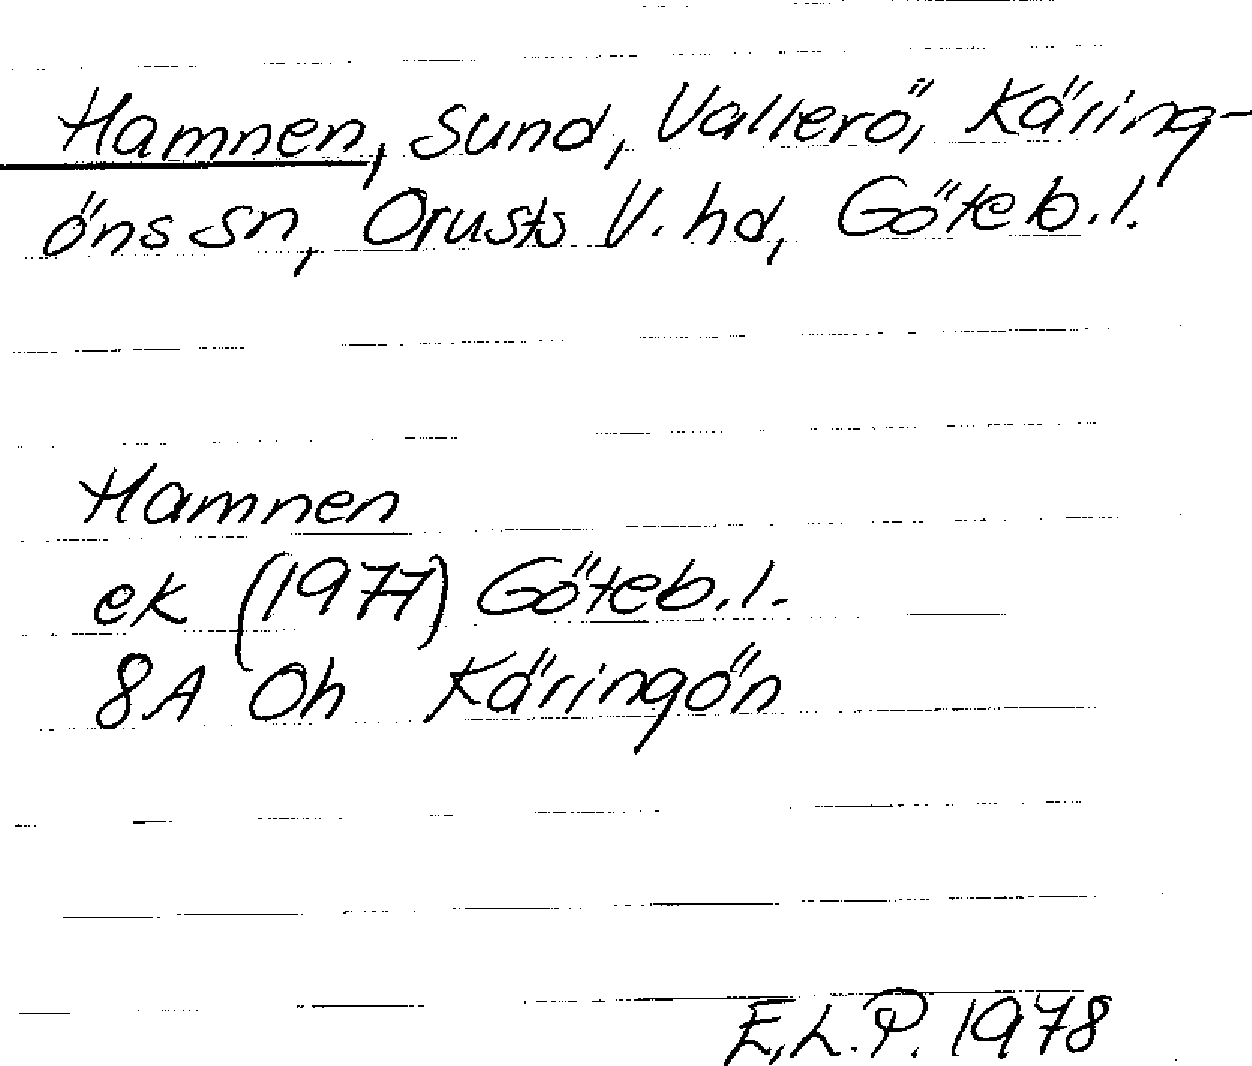 Hamnen, sund, Vallerö, Käring-
öns sn, Orusts V. hd, Göteb. l.
Hamnen
ek (1977) Göteb. l.
8A 0h Käringön
E.L.P. 1978